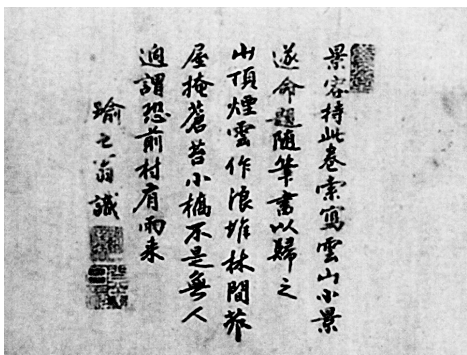 景容持此卷索寫雲山小景
遂命題隨筆書以歸之
山頂煙雲作浪堆林間茆
屋掩蒼苔小橋不是無人
過謂恐前村有雨来
翁識